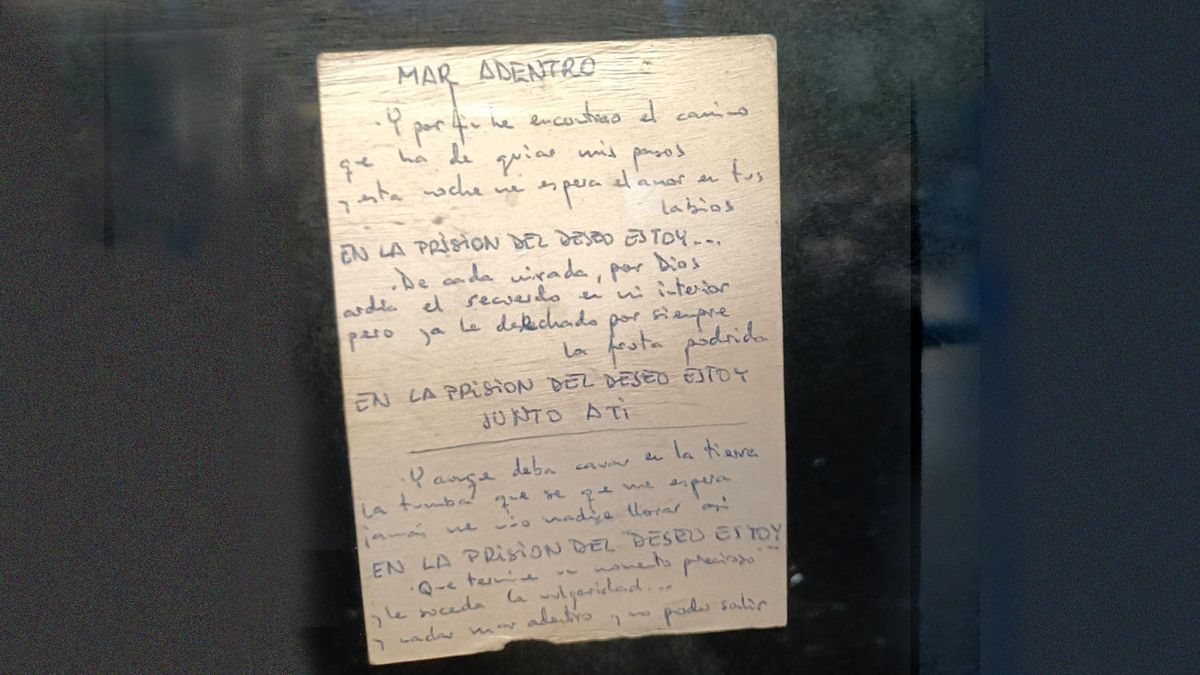 MAR ADENTRO
· Y por fin he encontrao el camino
que ha de guiar mis pasos
y esta noche me espera el amor en tus
labios
EN LA PRISION DEL DESEO ESTOY...
· De cada mirada, por Dios
ardía el recuerdo en mi interior
pero ya he desechado por siempre
la fruta podrida
EN LA PRISION DEL DESEO ESTOY
JUNTO A TI
· Y aunque deba cavar en la tierra
la tumba que se que me espera
jamás me vio nadie llorar así
EN LA PRISION DEL DESEO ESTOY...
· Que termine un momento precioso
y le suceda la vulgaridad...
y nadar mar adentro y no poder salir